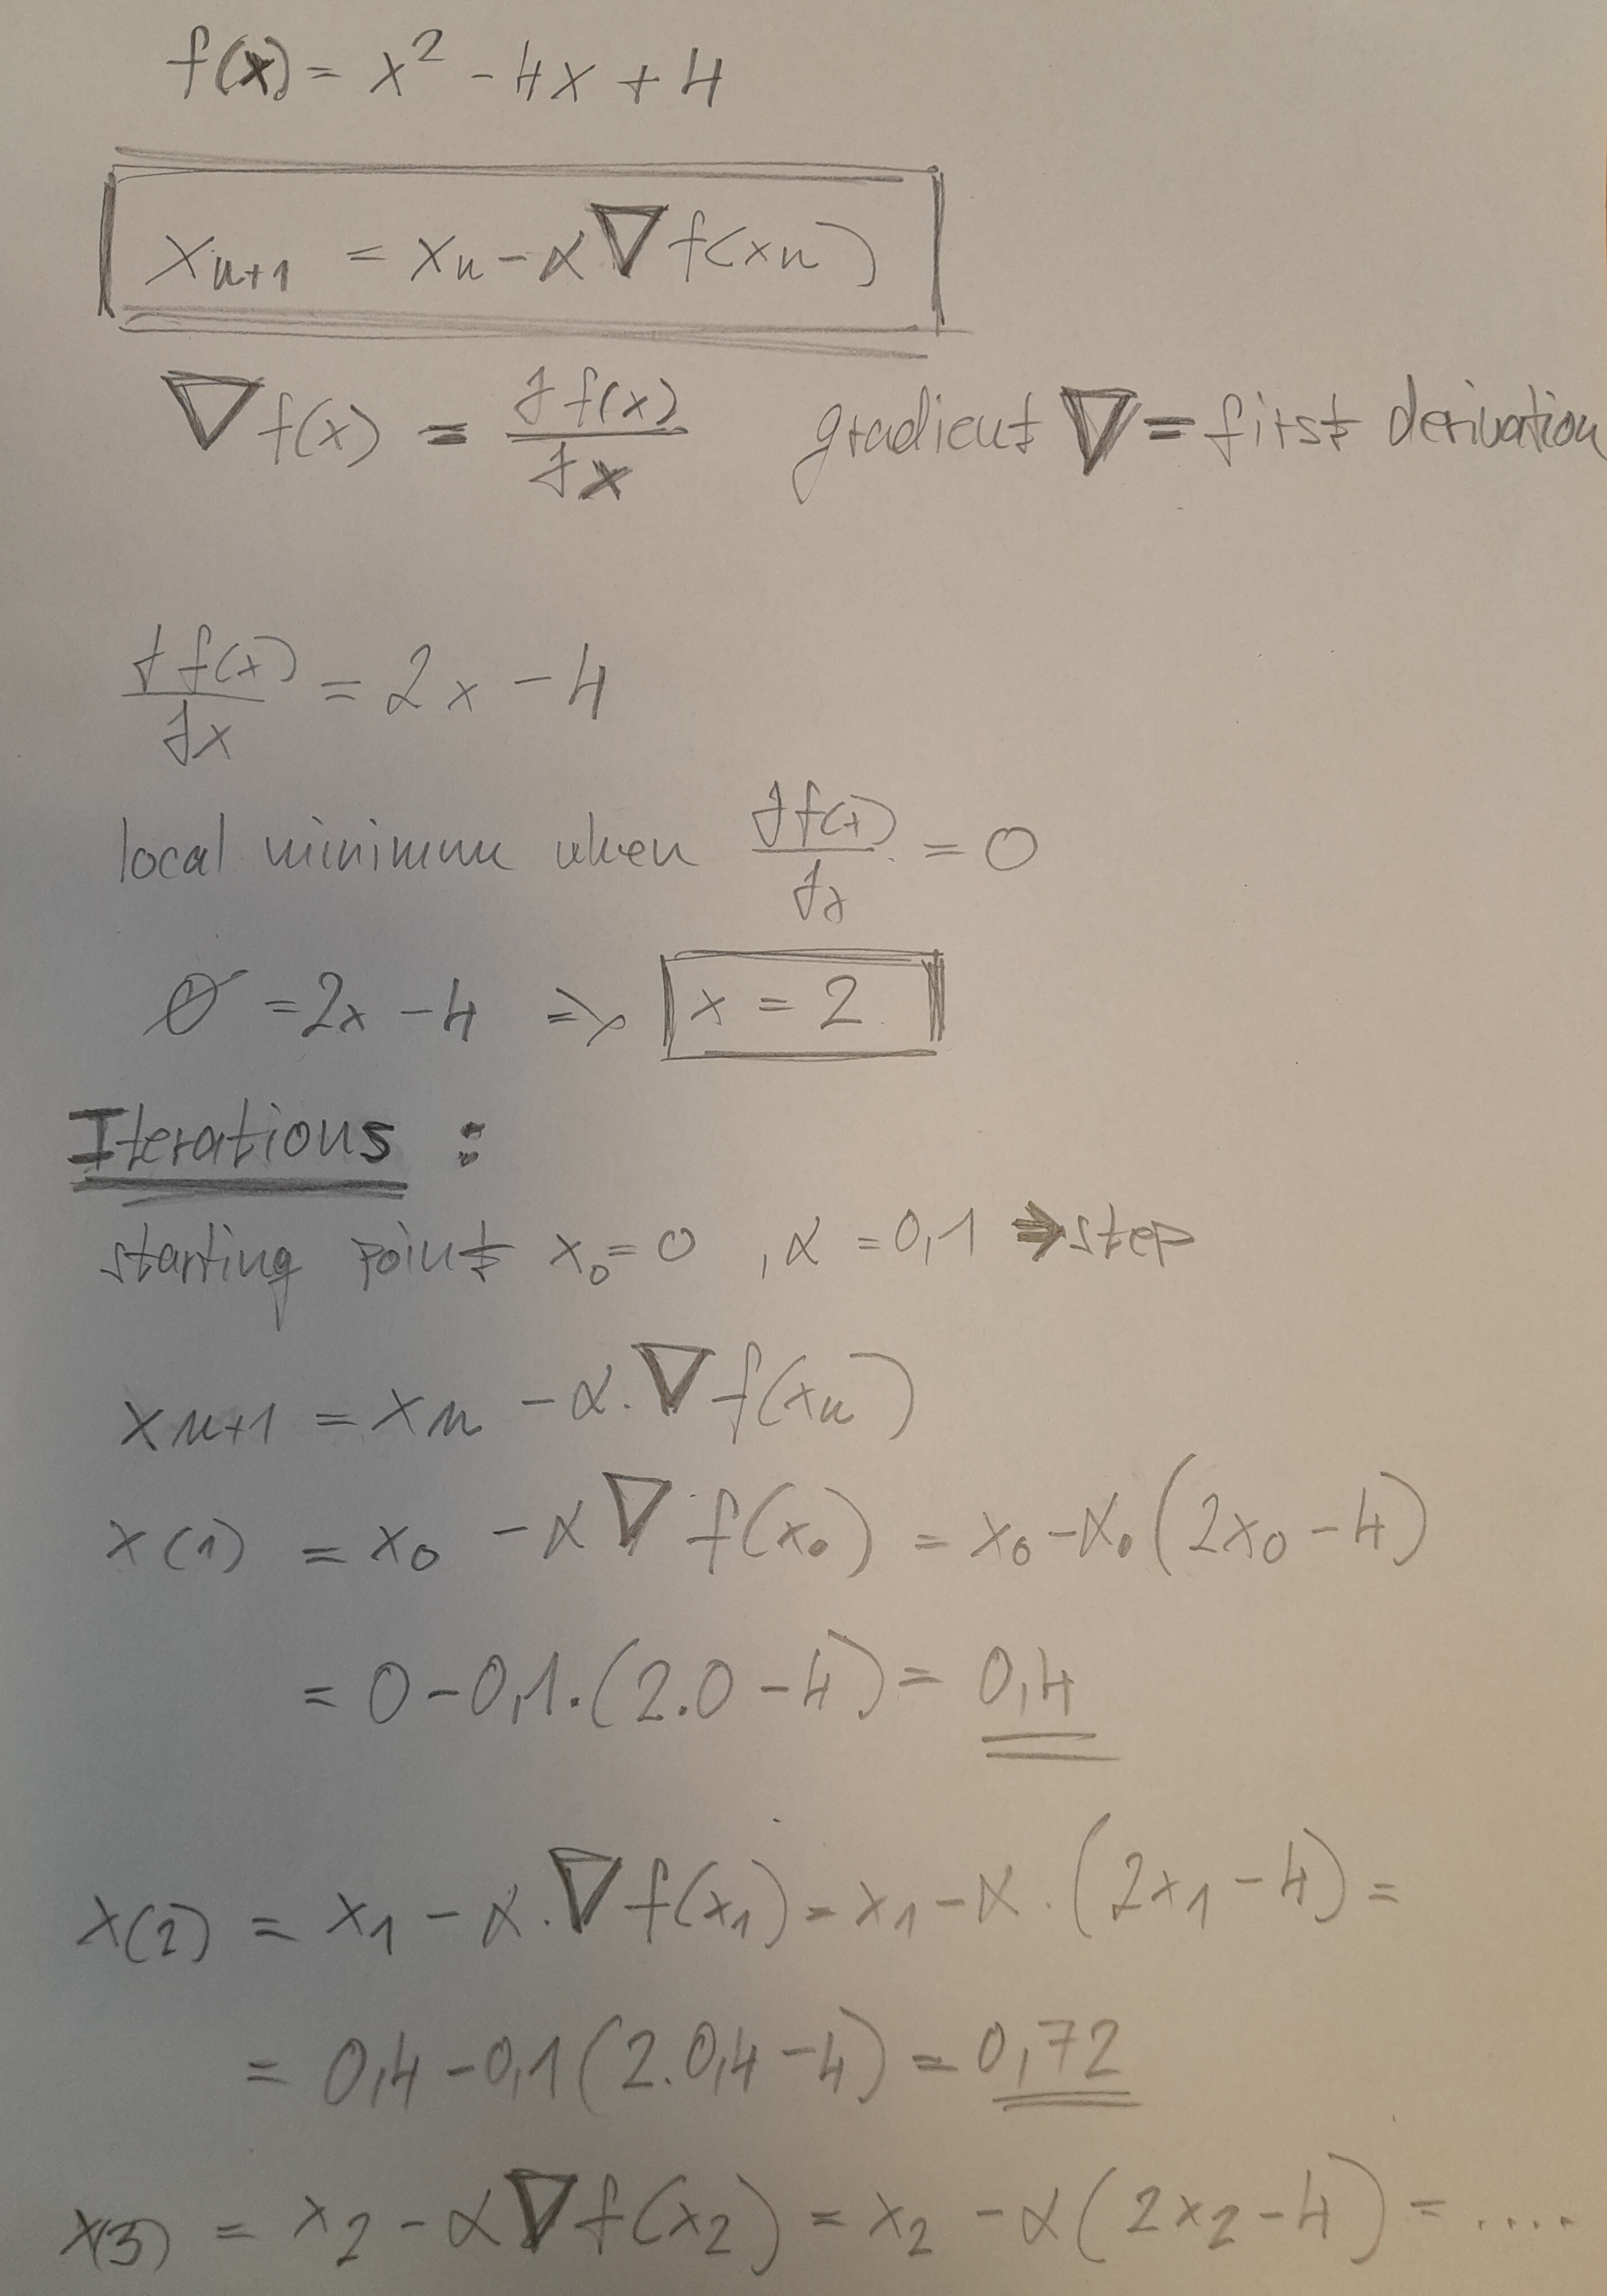 f(x) = x² - 4x + 4
x_{n+1} = x_n - α∇f(x_n)
∇f(x) = ∂f(x)/∂x gradient ∇ = first derivation
∂f(x)/∂x = 2x - 4
local minimum when ∂f(x)/∂x = 0
0 = 2x - 4 => x = 2
Iterations :
starting point x₀ = 0 , α = 0,1 → step
x_{n+1} = x_n - α.∇f(x_n)
x(1) = x₀ - α∇f(x₀) = x₀ - α.(2x₀ - 4)
= 0 - 0,1.(2.0 - 4) = 0,4
x(2) = x₁ - α.∇f(x₁) = x₁ - α.(2x₁ - 4) =
= 0,4 - 0,1(2.0,4 - 4) = 0,72
x(3) = x₂ - α∇f(x₂) = x₂ - α(2x₂ - 4) = ....